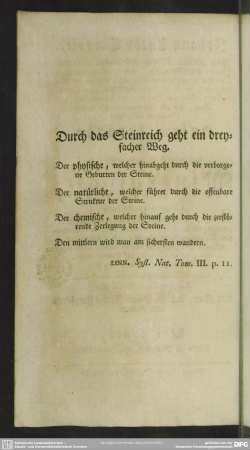 Durch das Steinreich geht ein drey-
facher Weg.
Der physische, welcher hinabgeht durch die verborge-
ne Geburten der Steine.
Der natürliche, welcher führet durch die offenbare
Struktur der Steine.
Der chemische, welcher hinauf geht durch die zerstö-
rende Zerlegung der Steine.
Den mittlern wird man am sichersten wandern.
LINN. Syst. Nat. Tom. III. p. 11.